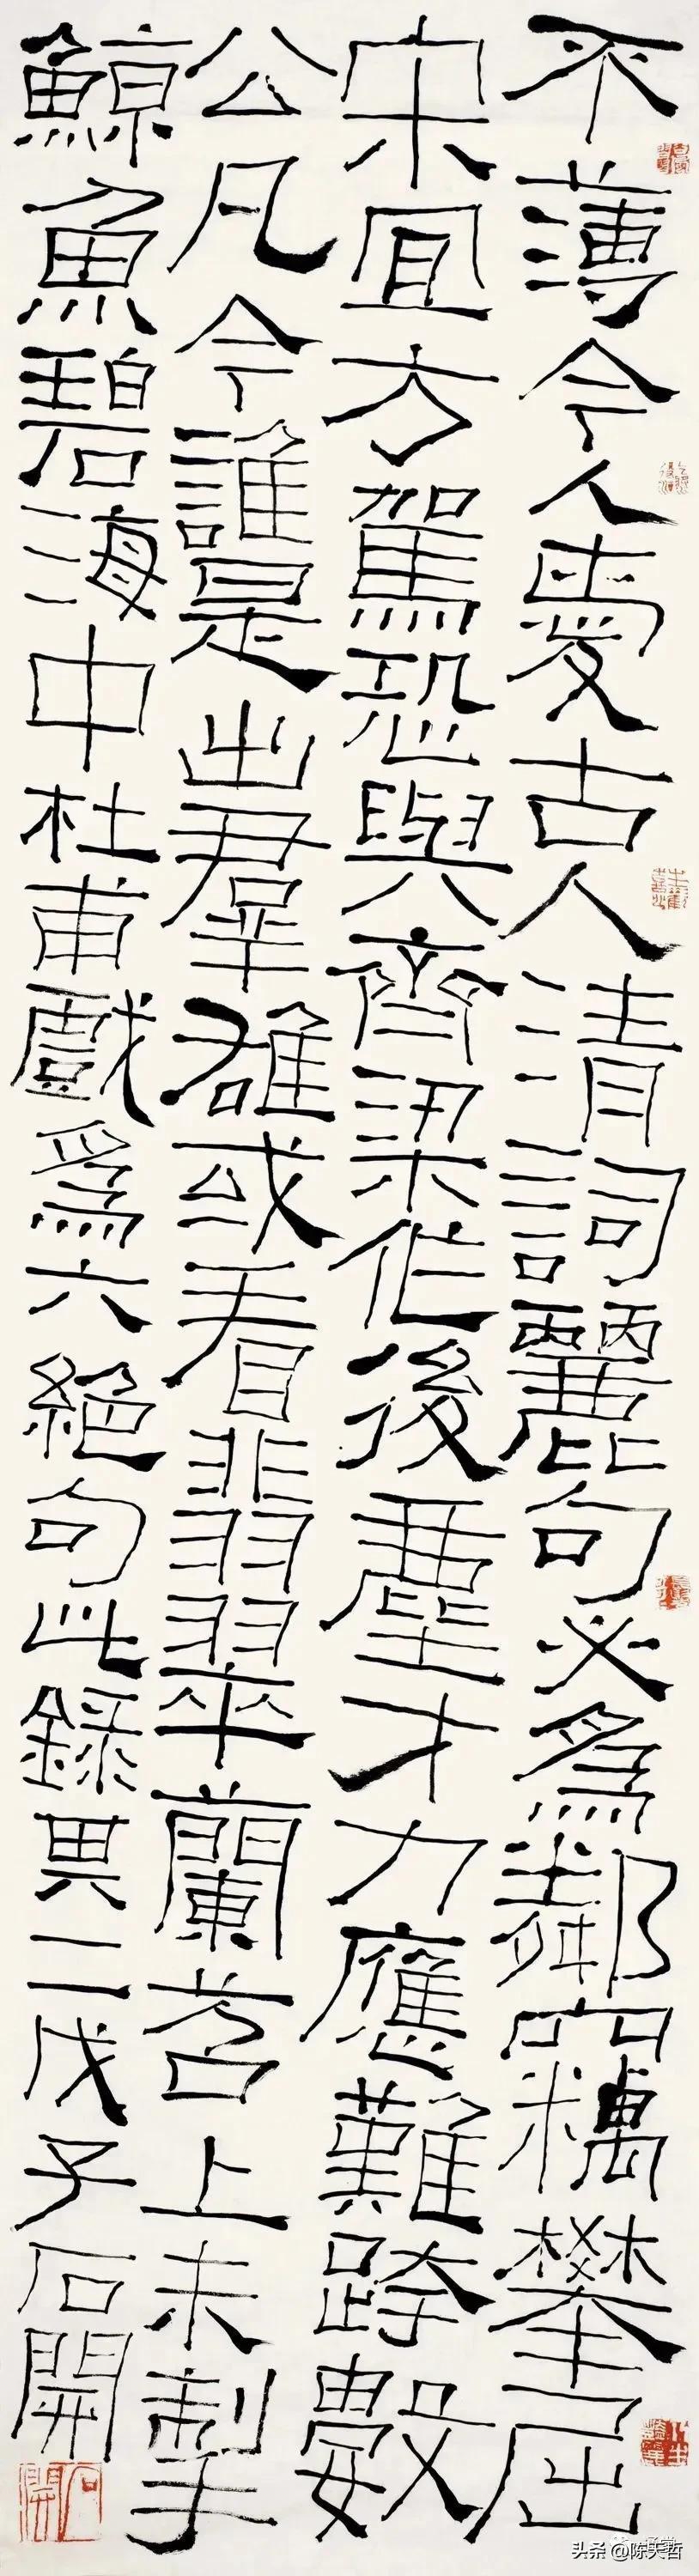 不薄今人愛古人清詞麗句必爲鄰竊攀屈
宋宜方駕恐與齊梁作後塵才力應難跨數
公凡今誰是出羣雄或看翡翠蘭苕上未掣
鯨魚碧海中杜甫戲爲六絕句此錄其二戊子石開
石開
头条 @陈天哲